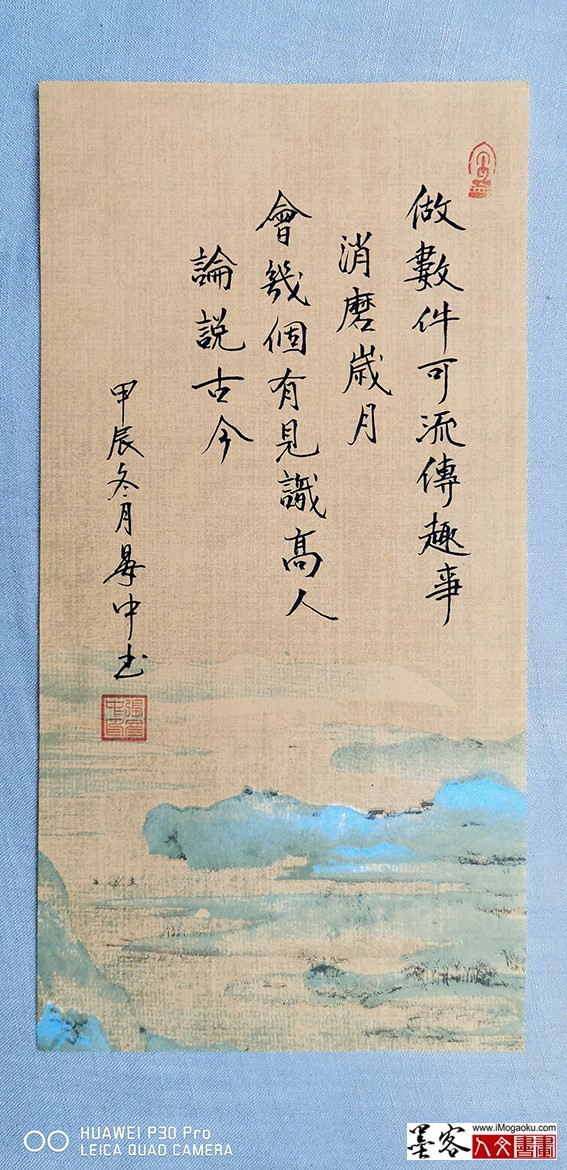 做數件可流傳趣事
消磨歲月
會幾個有見識高人
論説古今
甲辰冬月
中书
HUAWEI P30 Pro
LEICA QUAD CAMERA
墨客
www.iMogaoku.com
人文書畫